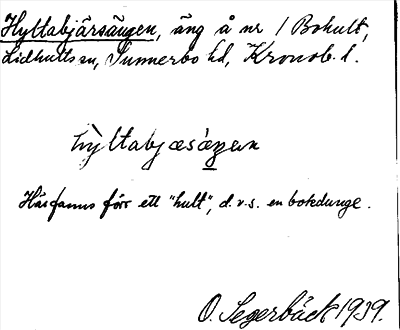 Hyttabjärsängen, äng å nr 1 Bohult,
Lidhults sn, Sunnerbo hd, Kronob. l.
hỳltabjæsàŋən
Här fanns förr ett "hult", d.v.s. en bokdunge.
O. Segerbäck 1939.